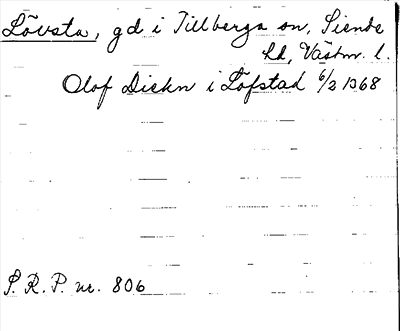 Lövsta, gd i Tillberga sn, Siende
hd, Västm. l.
Olof Diekn i Löfstad 6/2 1368
S.R.P. nr. 806